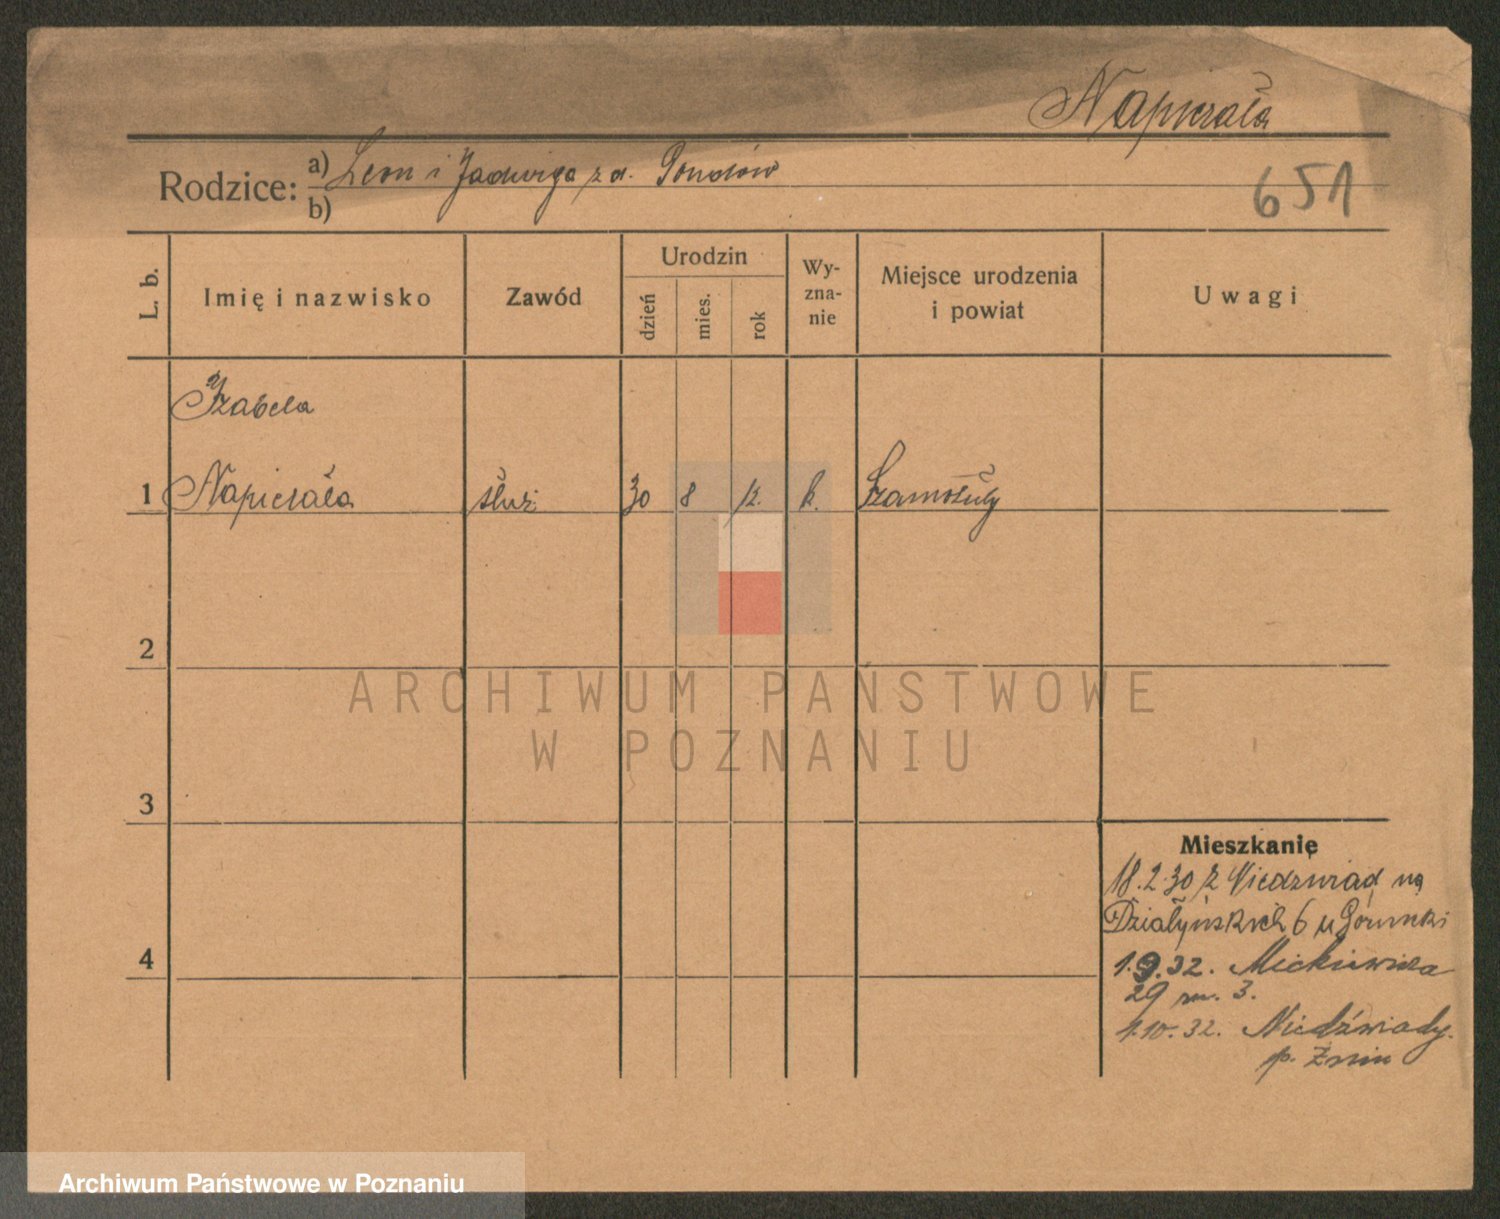 Napierała
Rodzice:
a) Leon i Jadwiga z d.
b)
651
L. b.
Imię i nazwisko
Zawód
Urodzin
dzień
mies.
rok
Wy-
zna-
nie
Miejsce urodzenia
i powiat
Uwagi
Izabela
1 Napierała służ. 30 8 12. k. Szamotuły
2
3
4
ARCHIWUM PAŃSTWOWE
W POZNANIU
Mieszkanię
18.2.30 z Niedzwiad na
Działyńskich 6 u
1.9.32. Mickiewicza
29 m. 3.
1.10.32. Niedźwiady
p. Żnin
Archiwum Państwowe w Poznaniu